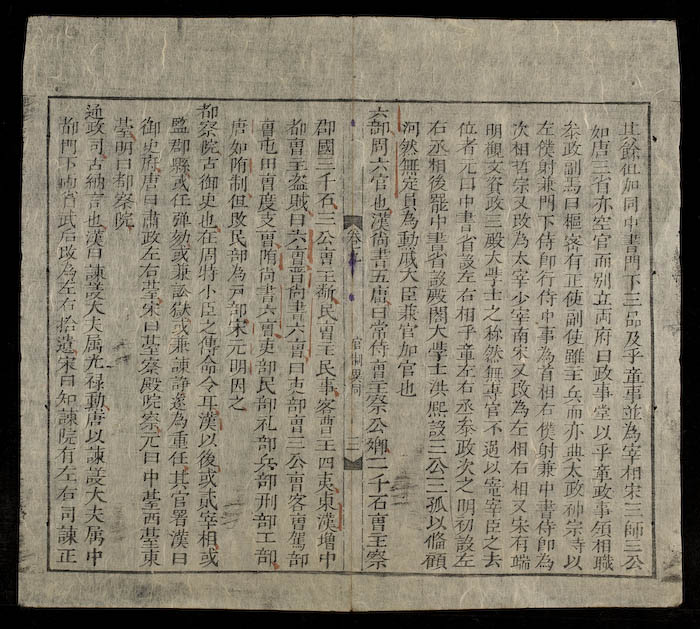 其餘但加同中書門下三品及平章事並為宰相宋三師三公
如唐三省亦空官而别立兩府曰政事堂以平章政事領相職
叅政副焉曰樞密有正使副使雖主兵而亦典大政神宗時以
左僕射兼門下侍郎行侍中事為首相右僕射兼中書侍郎為
次相哲宗又改為太宰少宰南宋又改為左相右相又宋有端
明觀文資政三殿大學士之称然無專官不過以寵宰臣之去
位者元曰中書省設左右相平章左右丞叅政次之明初設左
右丞相後罷中書省設殿閣大學士洪熙設三公三孤以俻顧
河然無定員為勳戚大臣兼官加官也
六部周六官也漢尚書五唐曰常侍曺主察公卿二千石曺主察
郡國二千石三公曺主断民曺主民事客曹主四夷東漢增中
都曺主盗賊曰六曺晋尚書六曺曰吏部曺三公曺客曺駕部
曺屯田曺度支曺隋尚書六曺吏部民部礼部兵部刑部工部
唐如隋制但改民部為户部宋元明因之
都察院古御史也在周特小臣之傳命令耳漢以後或貳宰相或
監郡縣或任弹劾或兼訟獄或兼諫諍遂為重任其官署漢曰
御史府唐曰肅政左右䑓宋曰䑓察殿院察元曰中䑓西䑓東
䑓明曰都察院
通政司古納言也漢曰諌議大夫属光禄勳唐以諌議大夫属中
都門下両省武后改為左右拾遺宋曰知諌院有左右司諌正
卷五
官制異同
三